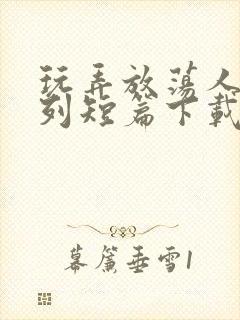 玩弄放荡人
列短篇下载
幕篱垂雪1